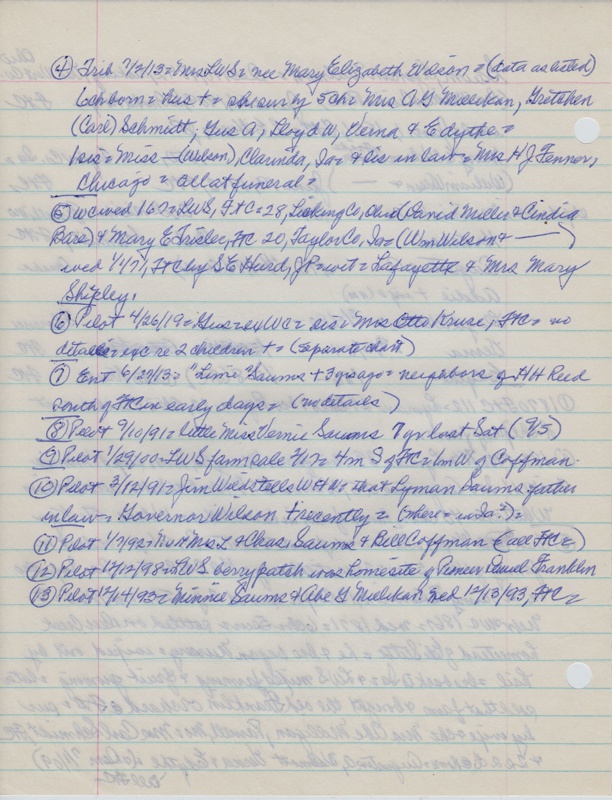 ④ Trib 7/2/13 = Mrs LWS = nee Mary Elizabeth Wilson = (data as listed)
6 ch born = hus + = ph surv by 5 ch = Mrs A G Millikan, Gretchen
(Carl) Schmitt; Gus A, Lloyd W, Verna & Edythe =
1 sis = Miss — (Wilson), Clarinda, Ia = & sis in law = Mrs H J Fenner,
Chicago = all at funeral =
⑤ WC wed 167 = LWS, FtC = 28, Licking Co, Ohio (David Miller & Cindia
Bare) & Mary E Frisler, FtC 20, Taylor Co, Ia = (Wm Wilson & — )
wed 1/4/71, FtC by S E Hurd, JP = wit = Lafayette & Mrs Mary
Shipley.
⑥ Pilot 4/26/19 = Gus = ex WC = sis = Mrs Otto Kruse, FtC = no
details = exc re 2 children + = (separate chart)
⑦ Ent 6/27/13 = "Lime" Saums + 3 yrs ago = neighbors of H H Reed
south of FtC in early days = (no details)
⑧ Pilot 9/10/91 = little Miss Vernie Saums 7 yr last Sat (9/5)
⑨ Pilot 1/29/00 = LWS farm sale 2/1 = 4m S of FtC = 1m W of Coffman.
⑩ Pilot 3/12/91 = Jim Wild tells that Lyman Saums father
in law = Governor Wilson + recently = (where = in Ia?) =
⑪ Pilot 1/7/92 = Mr & Mrs L & Chas. Saums & Bill Coffman (all FtC)
⑫ Pilot 12/12/98 = LWS berry patch was homesite of Pioneer Daniel Franklin
⑬ Pilot 12/14/93 = Minnie Saums & Abe G Millikan wed 12/13/93, FtC =